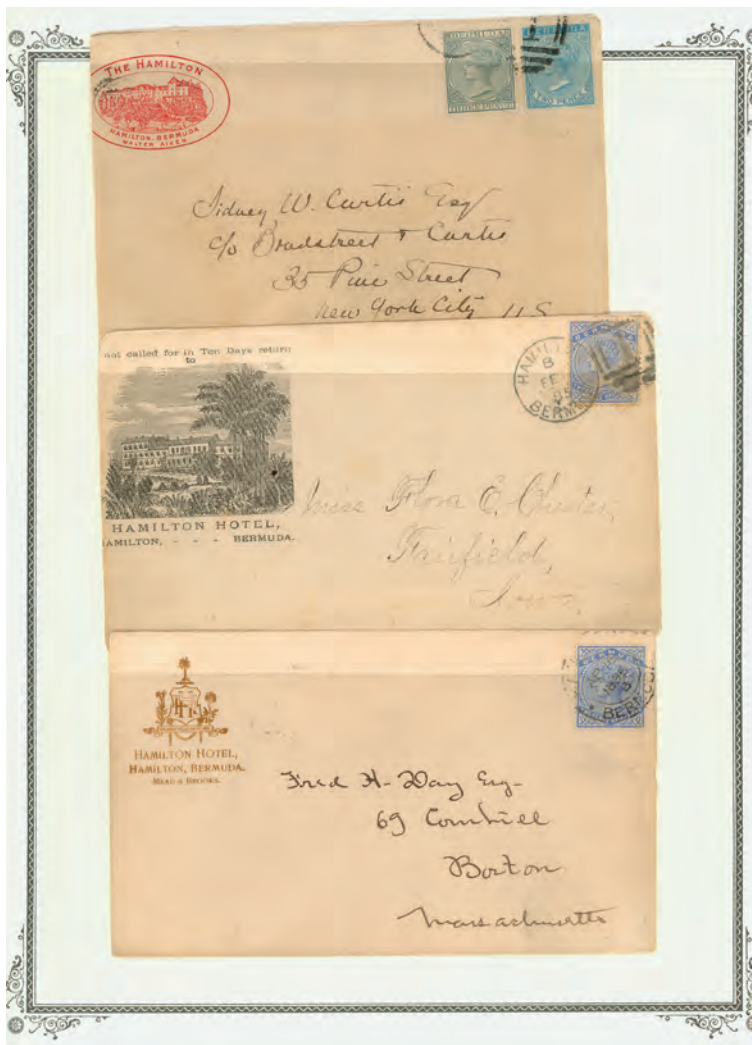 THE HAMILTON
HAMILTON, BERMUDA
WALTER AIKEN
BERMUDA
BERMUDA
TWO PENCE
Sidney W. Curtis Esq
c/o Bradstreet & Curtis
35 Pine Street
New York City U.S.
not called for in Ten Days return
to
HAMILTON HOTEL,
HAMILTON, - - - BERMUDA.
BERMUDA
HAMILTON
B
FE
BERMUDA
Miss Flora E.
Fairfield,
Iowa
BERMUDA
BERMUDA
HH
HAMILTON HOTEL,
HAMILTON, BERMUDA.
MEAD & BROOKS.
Fred H. Day Esq-
69 Cornhill
Boston
Massachusetts